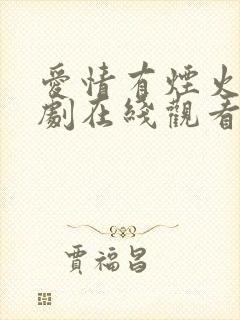 愛情有煙火
劇在綫觀看
賈福昌